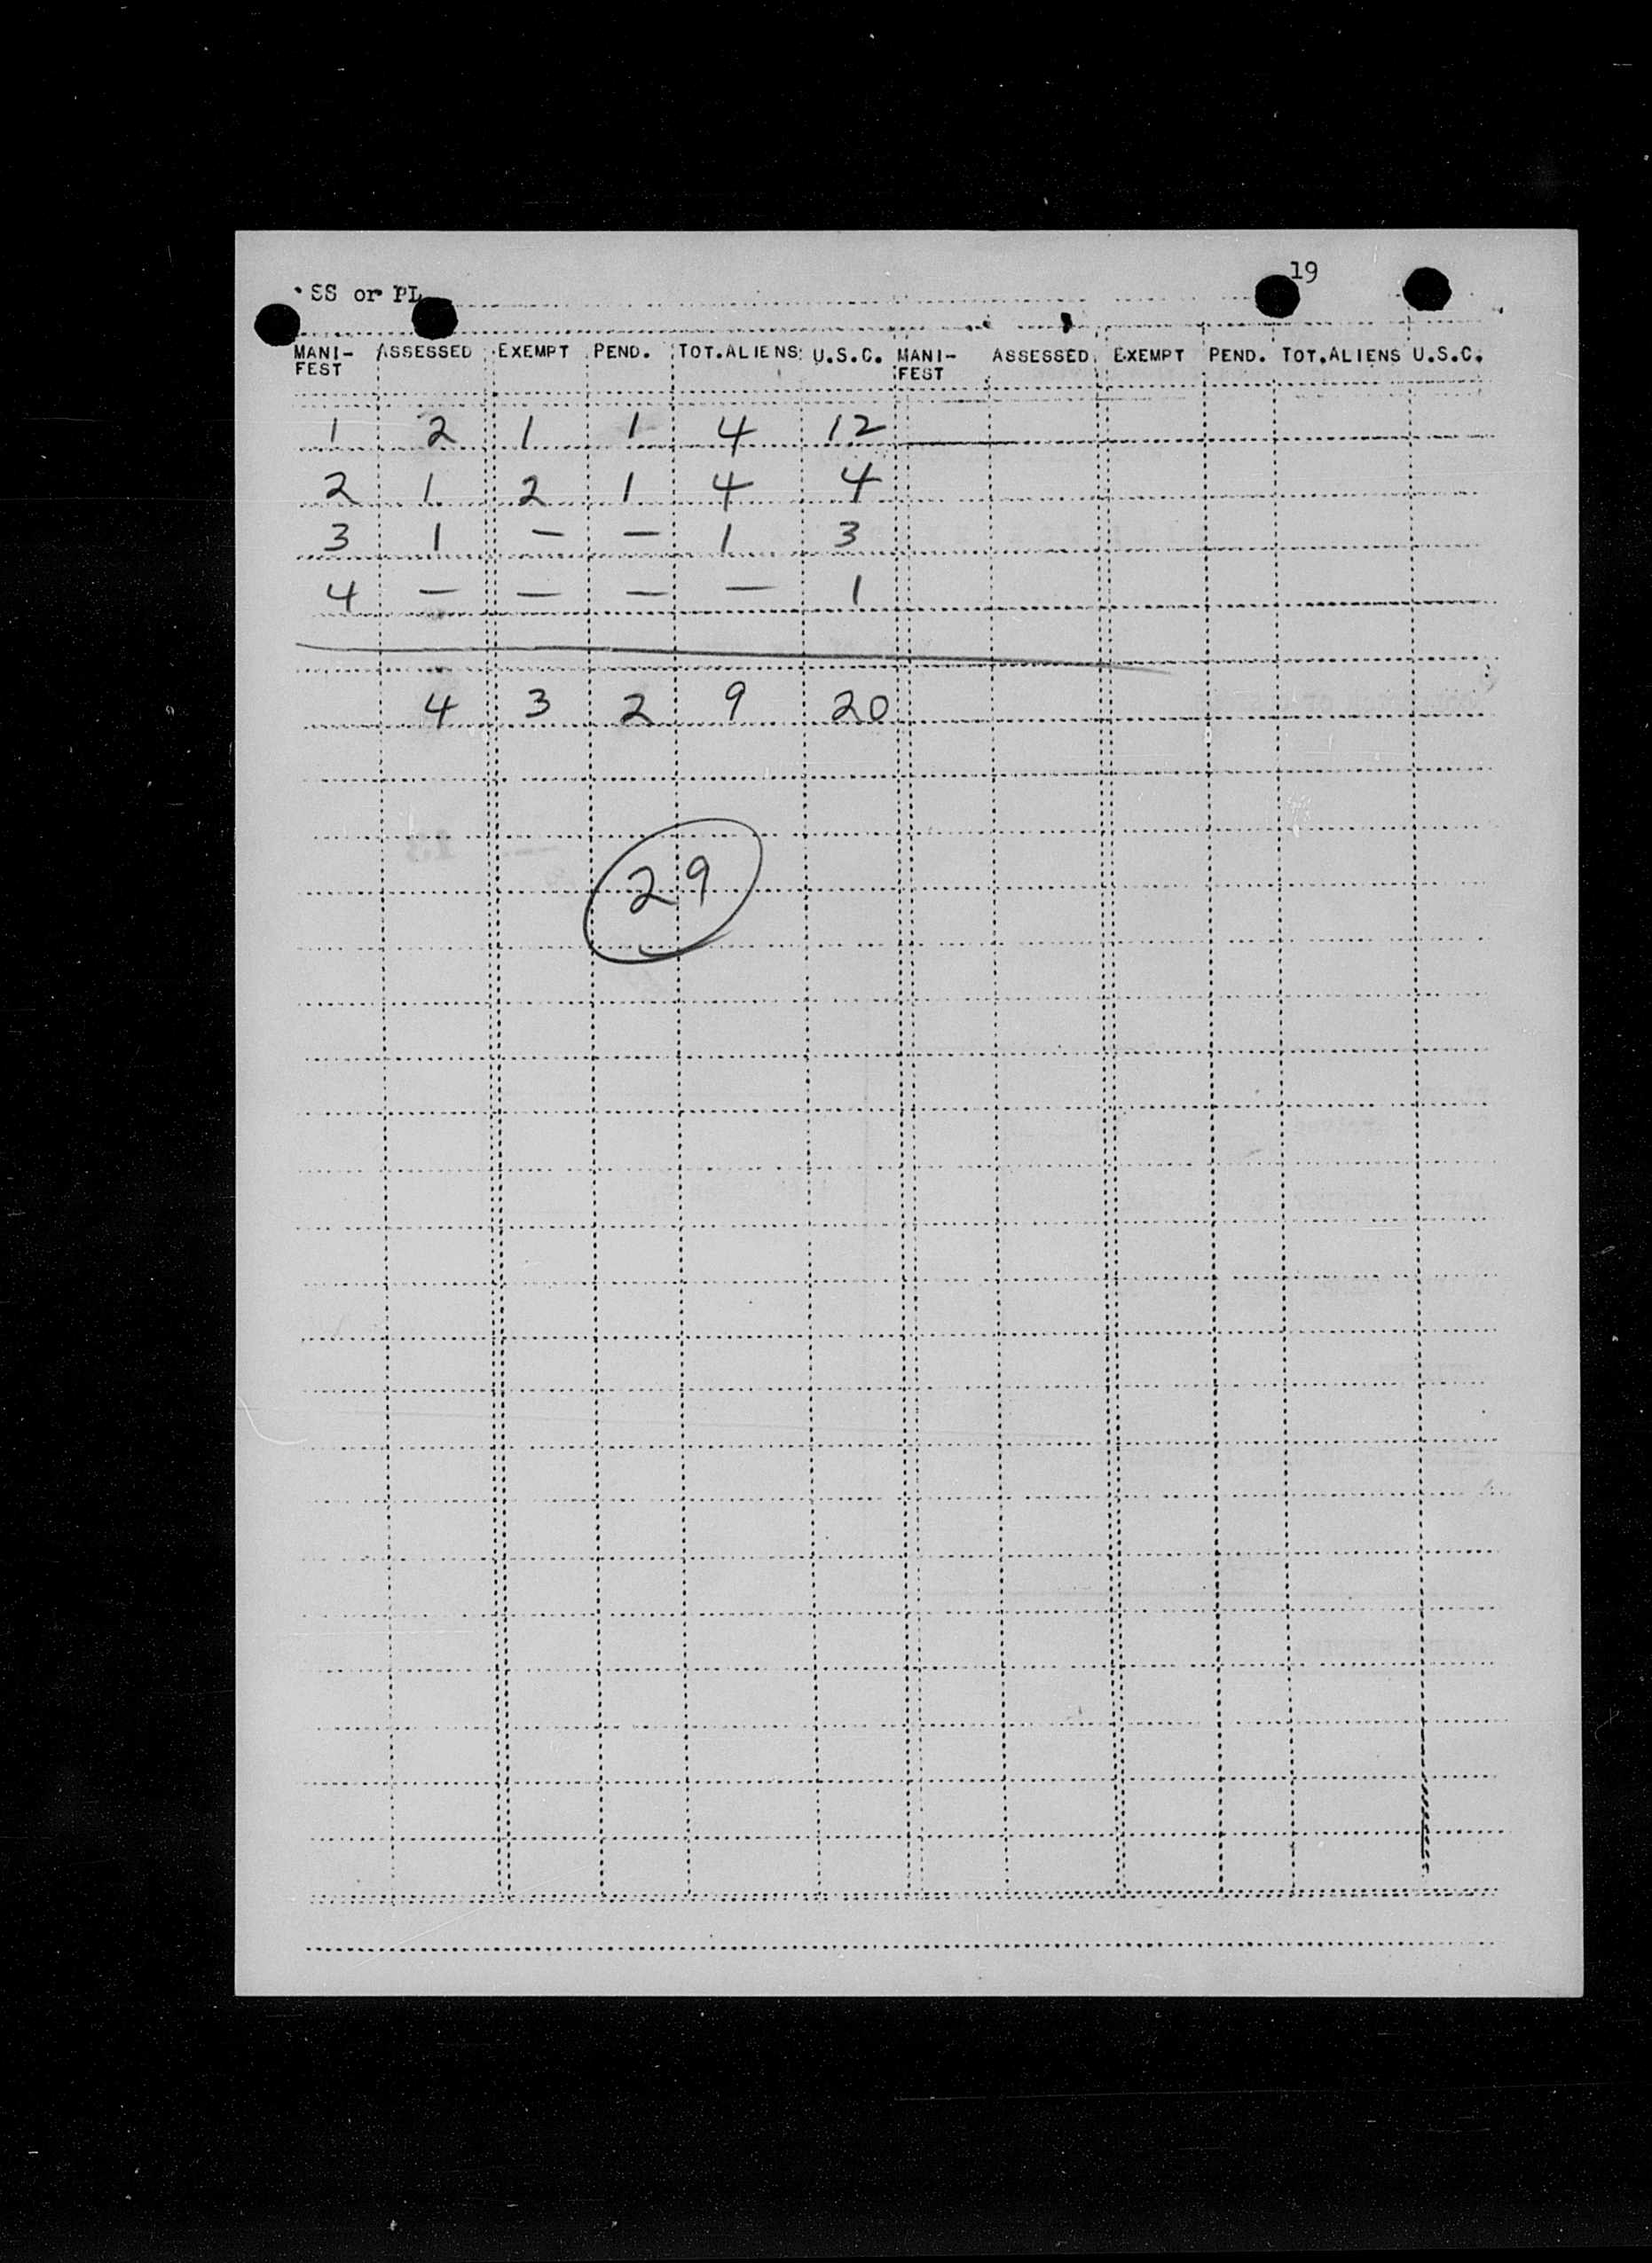 19
SS or PL
MANI- ASSESSED EXEMPT PEND. TOT.ALIENS U.S.C. MANI- ASSESSED EXEMPT PEND. TOT.ALIENS U.S.C.
FEST FEST
1 2 1 1 4 12
2 1 2 1 4 4
3 1 — — 1 3
4 — — — — 1
4 3 2 9 20
29